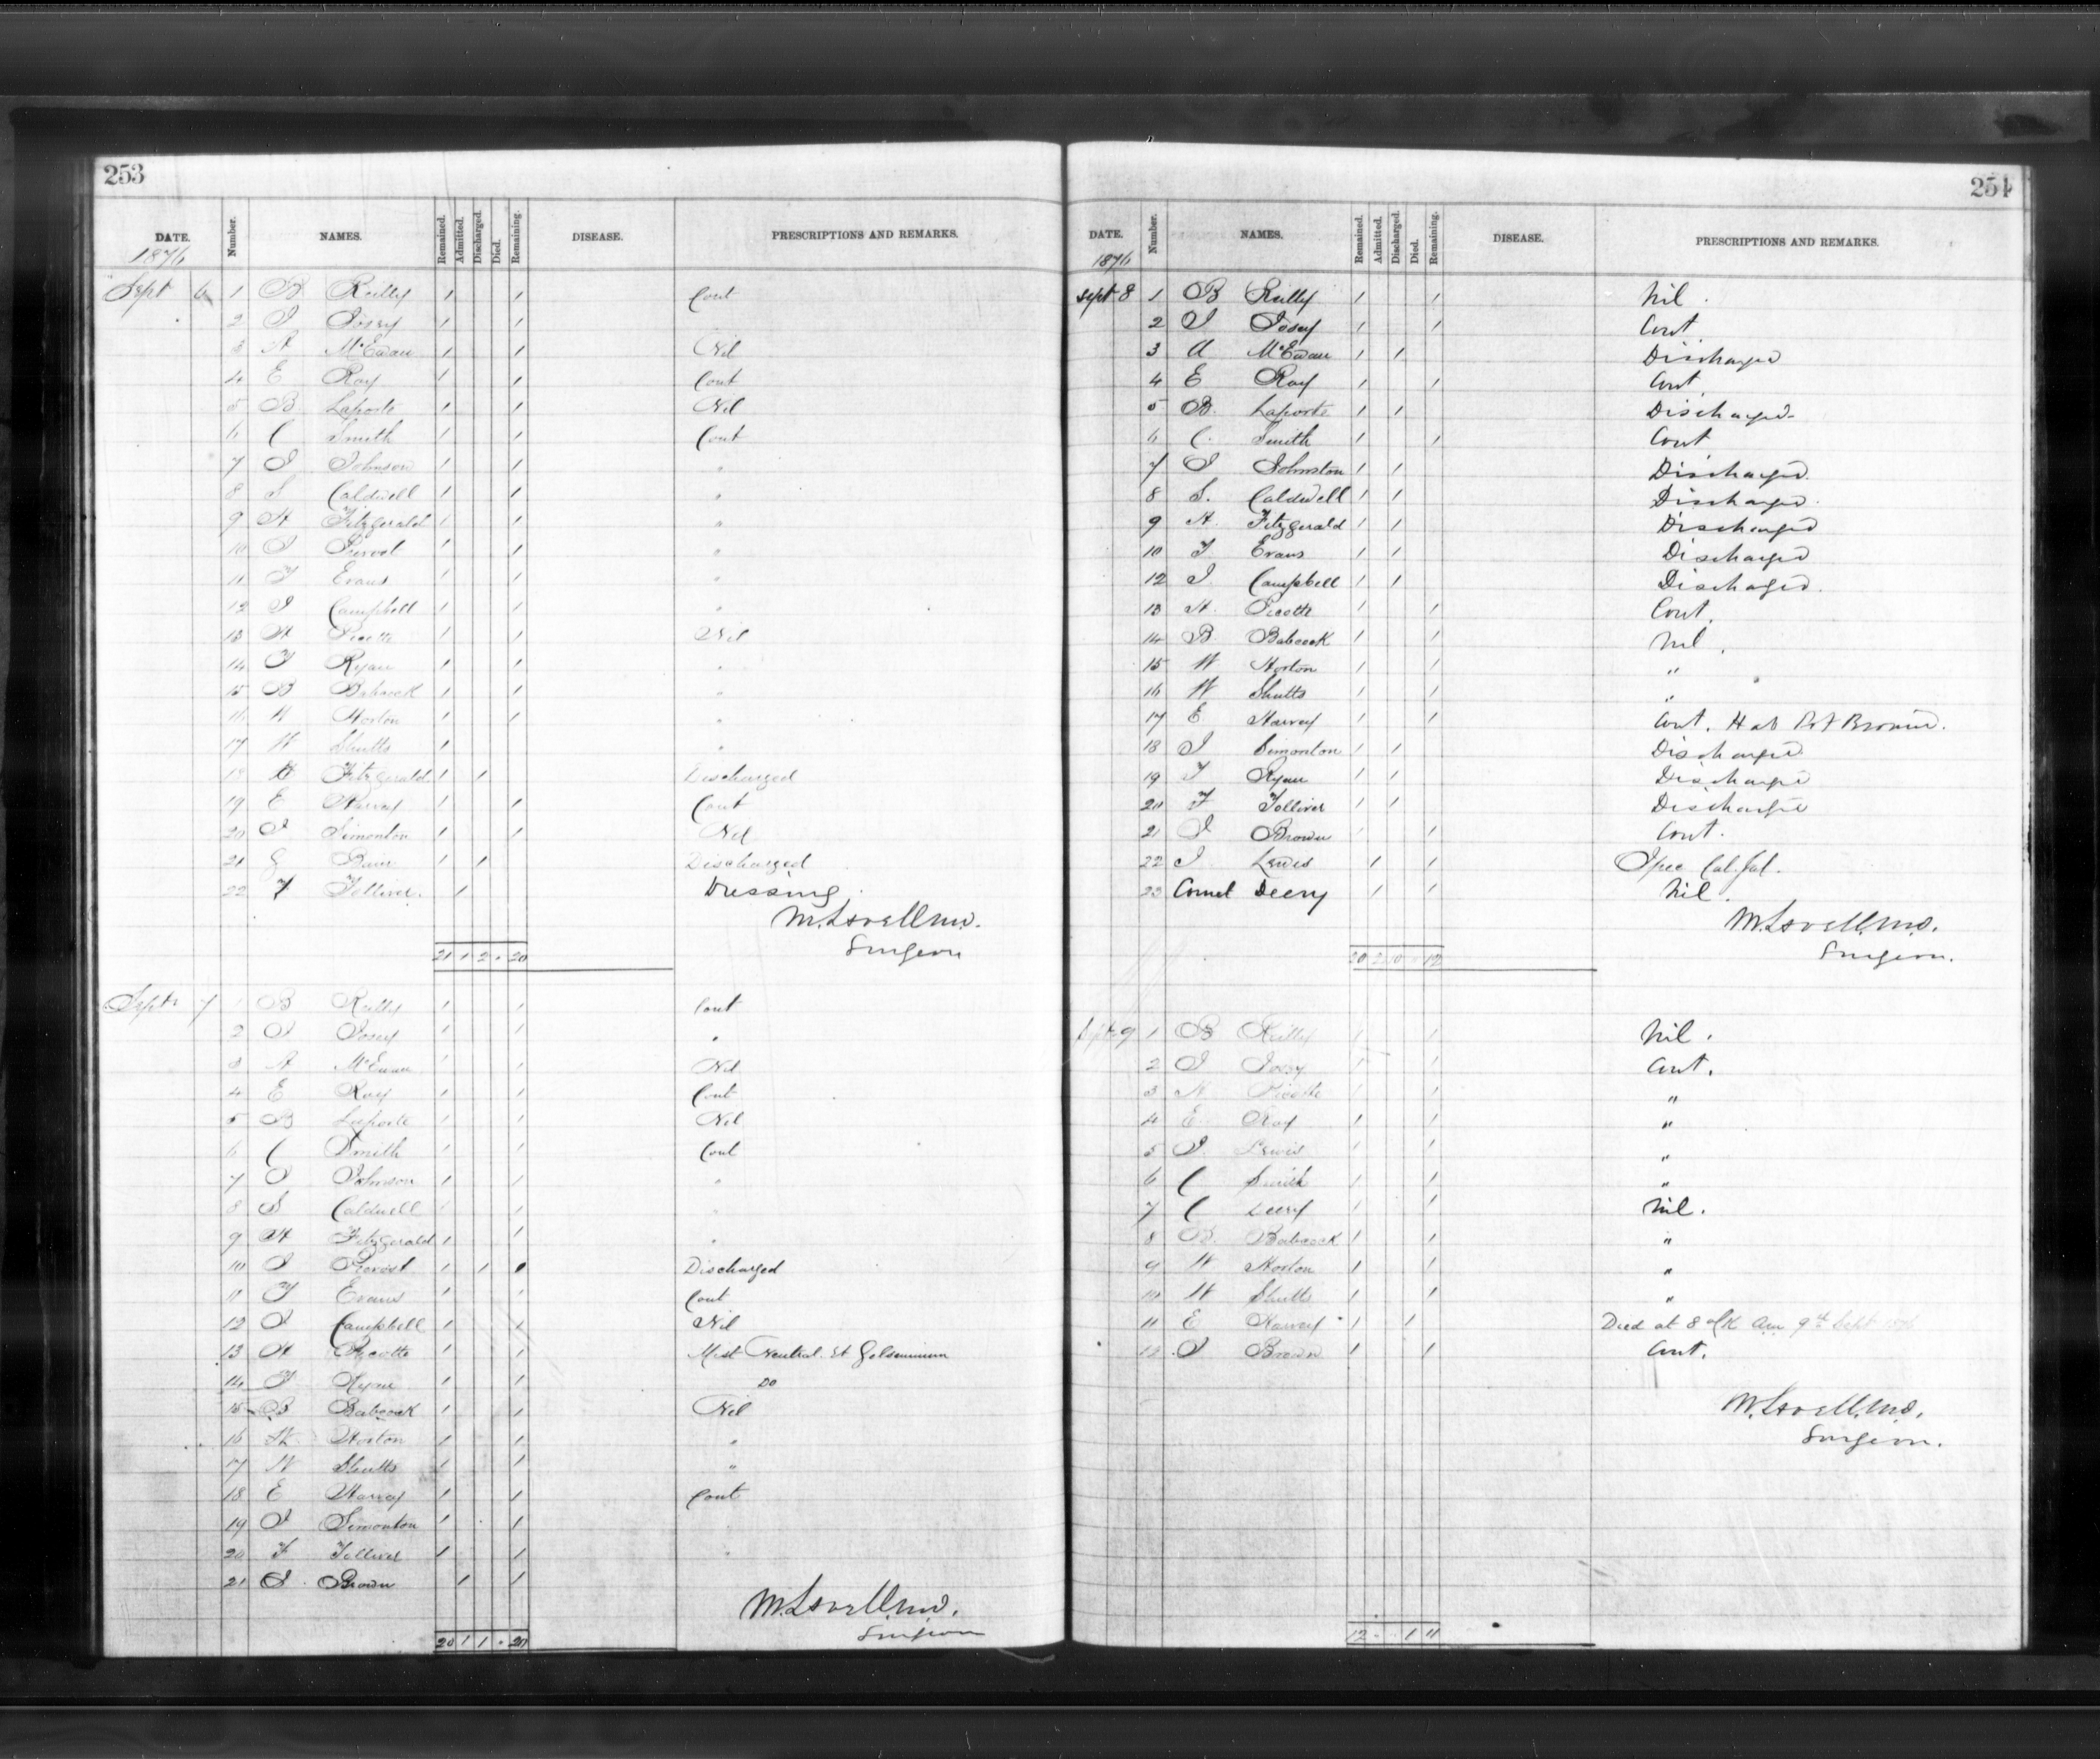 253
DATE. Number. NAMES. Remained. Admitted. Discharged. Died. Remaining. DISEASE. PRESCRIPTIONS AND REMARKS.
1876
Sept 6 1 B Reilly 1 1 Cont
2 J 1 1
3 A McEwan 1 1 Nil
4 E Roy 1 1 Cont
5 B Laporte 1 1 Nil
6 C Smith 1 1 Cont
7 J Johnson 1 1 "
8 S Caldwell 1 1 "
9 H Fitzgerald 1 1 "
10 J 1 1 "
11 T Evans 1 1 "
12 J Campbell 1 1 "
13 H Picotte 1 1 Nil
14 T Ryan 1 1 "
15 B Babcock 1 1 "
16 W Horton 1 1 "
17 W Shutts 1 "
18 H Fitzgerald 1 1 Discharged
19 E Harvey 1 1 Cont
20 J Simonton 1 1 Nil
21 1 1 Discharged
22 F Tolliver 1 Dressing
M. Lavell M.D.
Surgeon
21 1 2 . 20
Sept 7 1 B Reilly 1 1 Cont
2 J 1 1 "
3 A McEwan 1 1 Nil
4 E Roy 1 1 Cont
5 B Laporte 1 1 Nil
6 C Smith 1 1 Cont
7 J Johnson 1 1 "
8 S Caldwell 1 1 "
9 H Fitzgerald 1 1 "
10 J Provost 1 1 Discharged
11 T Evans 1 1 Cont
12 J Campbell 1 1 Nil
13 H Picotte 1 1 Mist Neutral. et Gelseminum
14 T Ryan 1 1 Do
15 B Babcock 1 1 Nil
16 W Horton 1 1 "
17 W Shutts 1 1 "
18 E Harvey 1 1 Cont
19 J Simonton 1 1
20 F Tolliver 1 1 "
21 J Brown 1 1
M. Lavell M.D.
Surgeon
20 1 1 . 20
254
DATE. Number. NAMES. Remained. Admitted. Discharged. Died. Remaining. DISEASE. PRESCRIPTIONS AND REMARKS.
1876
Sept 8 1 B Reilly 1 1 Nil.
2 J 1 1 Cont
3 A McEwan 1 1 Discharged
4 E Roy 1 1 Cont
5 B. Laporte 1 1 Discharged
6 C. Smith 1 1 Cont
7 J Johnston 1 1 Discharged.
8 S. Caldwell 1 1 Discharged.
9 H. Fitzgerald 1 1 Discharged
10 T Evans 1 1 Discharged
12 J Campbell 1 1 Discharged.
13 H. Picotte 1 1 Cont.
14 B. Babcock 1 1 Nil.
15 W Horton 1 1 "
16 W Shutts 1 1 "
17 E Harvey 1 1 Cont. Hab Pot Bromid.
18 J Simonton 1 1 Discharged
19 T Ryan 1 1 Discharged
20 F Tolliver 1 1 Discharged
21 J Brown 1 1 Cont.
22 J Lewis 1 1 Ipec Cal. Jal.
23 Cornel Deery 1 1 Nil.
M. Lavell. M.D.
Surgeon.
20 2 10 . 12
Sept 9 1 B Reilly 1 1 Nil.
2 J 1 1 Cont.
3 H Picotte 1 1 "
4 E. Roy 1 1 "
5 J. Lewis 1 1 "
6 C Smith 1 1 "
7 C Deery 1 1 Nil.
8 B. Babcock 1 1 "
9 W Horton 1 1 "
10 W Shutts 1 1 "
11 E Harvey 1 1 Died at 8 olk Am 9th Sept 1876
12 J Brown 1 1 Cont.
M. Lavell. M.D.
Surgeon.
12 . . 1 11